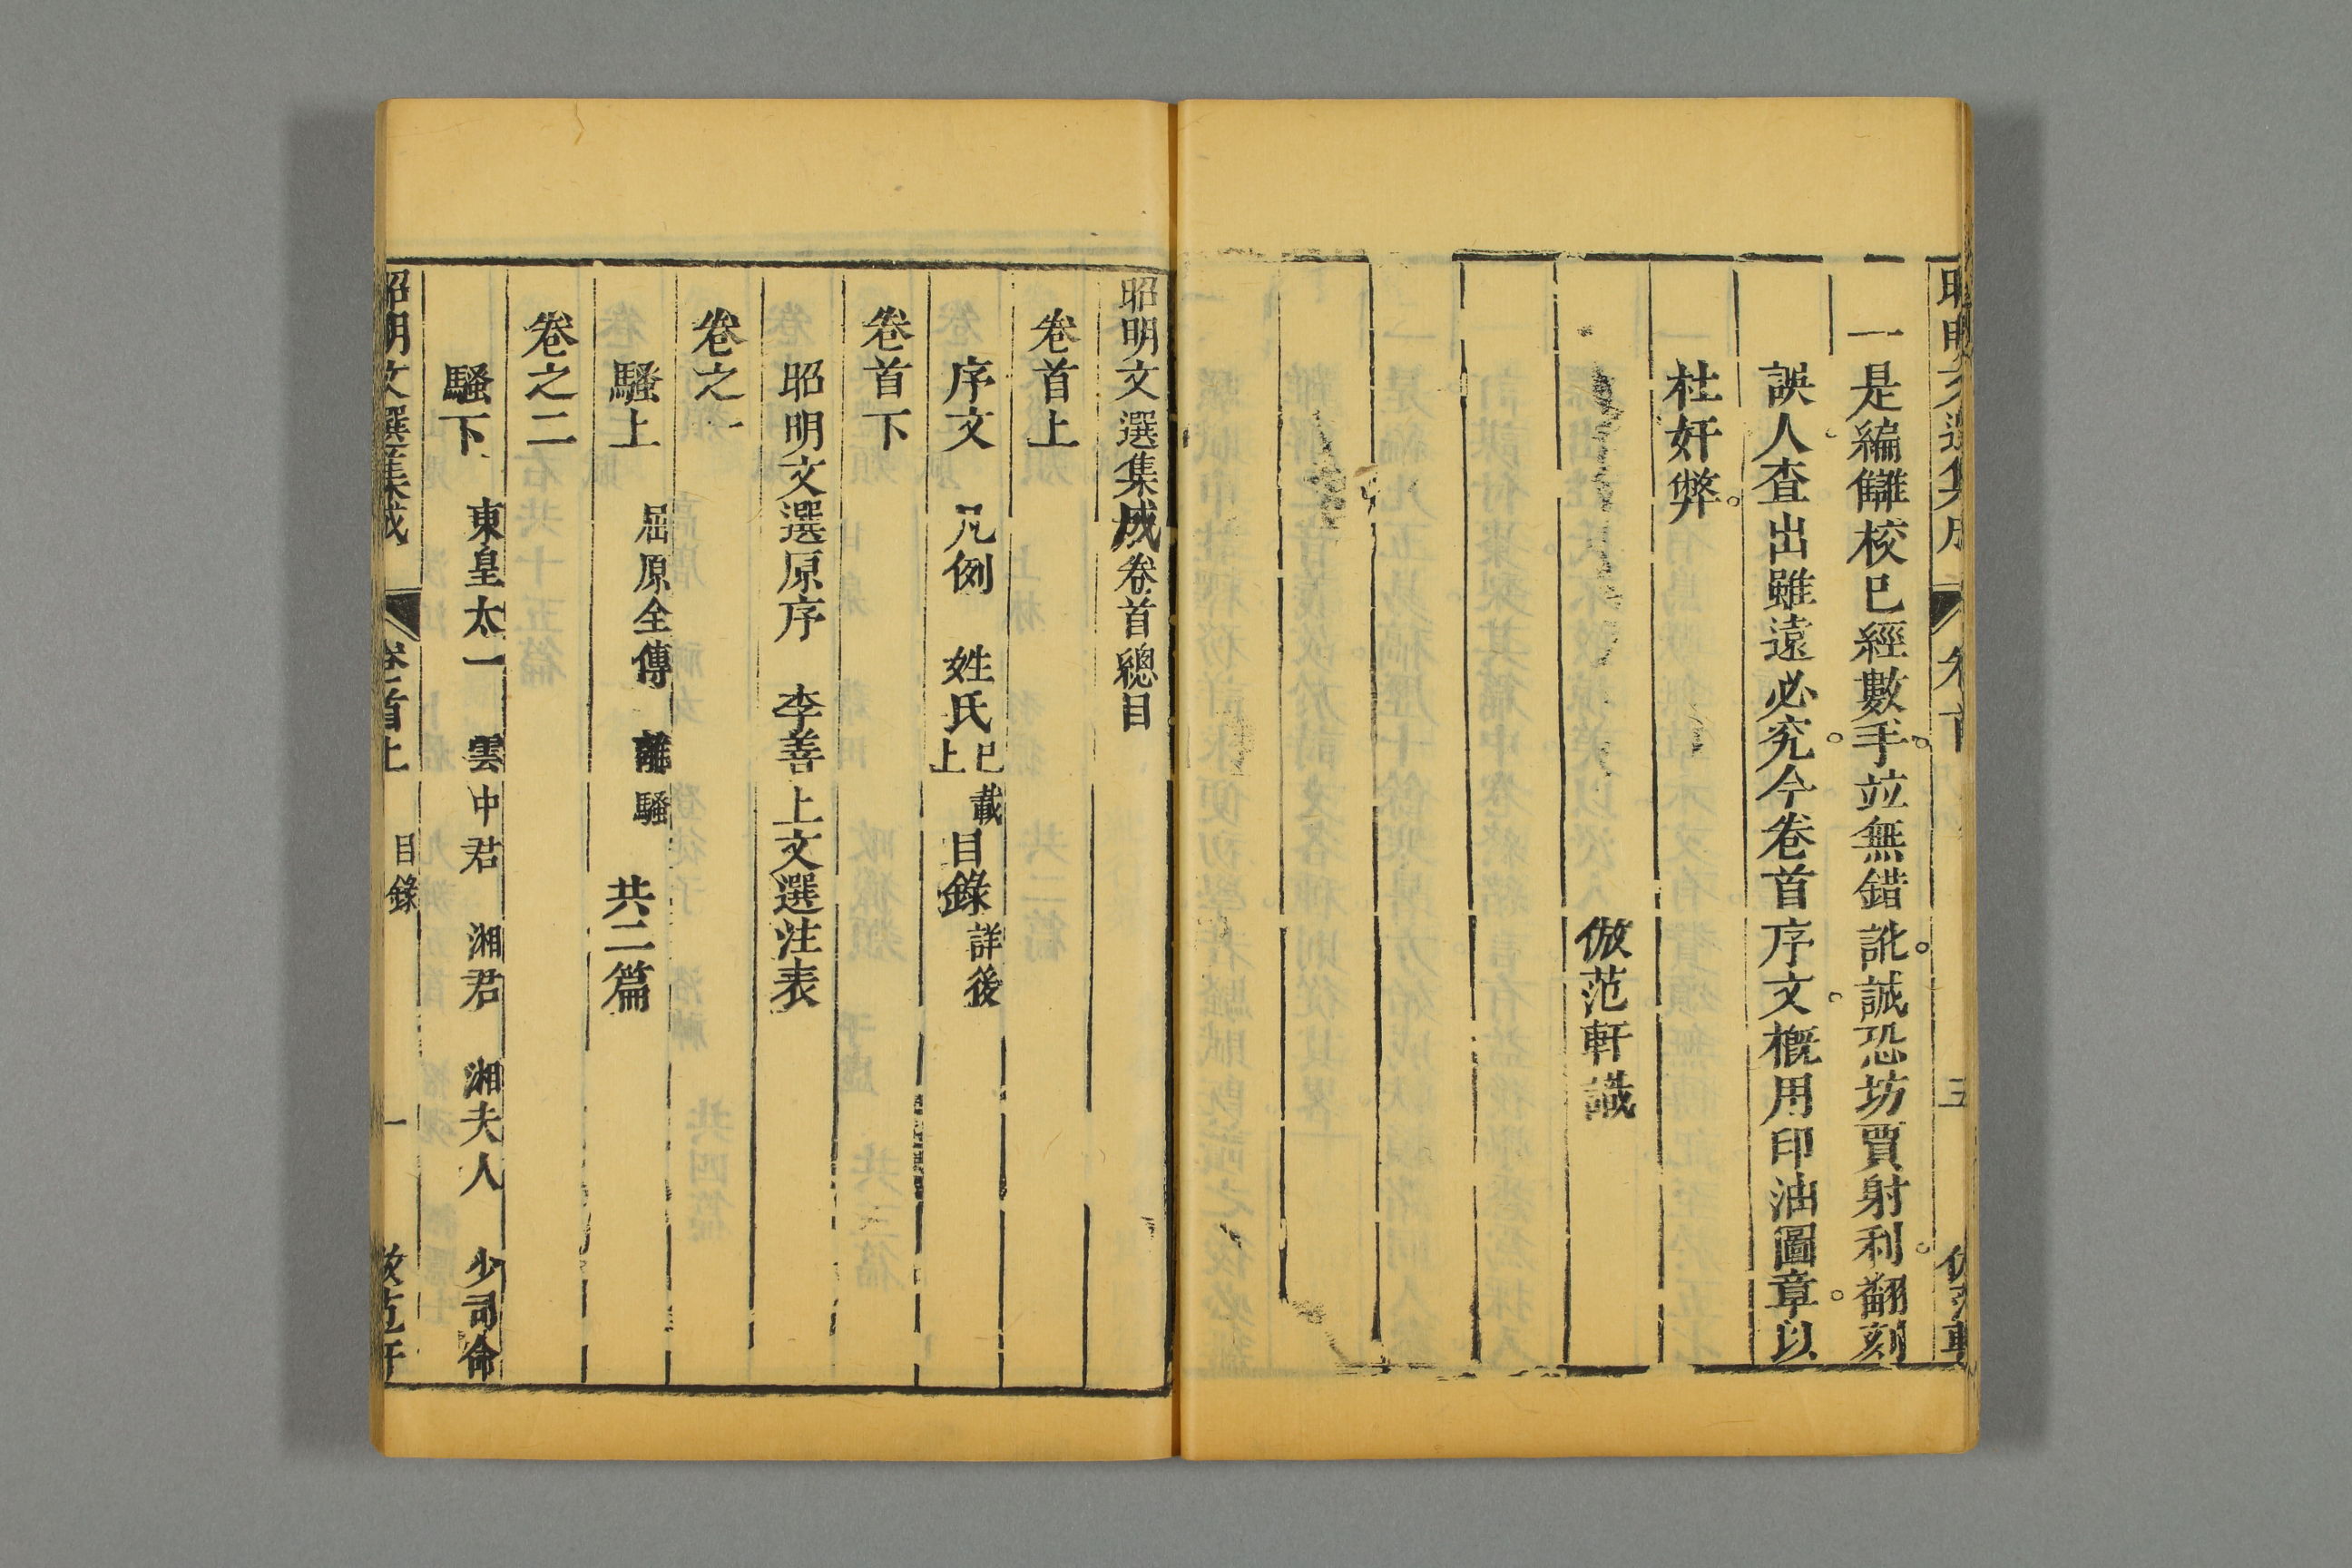 一是編讎校已經數手。竝無錯訛。誠恐坊賈射利。翻刻
誤人。查出雖遠必究。今卷首序文。概用印油圖章。以
杜奸弊。
倣范軒識
昭明文選集成卷首總目
卷首上
序文 凡例 姓氏已載上 目錄詳後
卷首下
昭明文選原序 李善上文選注表
卷之一
騷上 屈原全傳 離騷 共二篇
卷之二
騷下 東皇太一 雲中君 湘君 湘夫人 少司命
昭明文選集成 卷首上 目錄 一 倣范軒